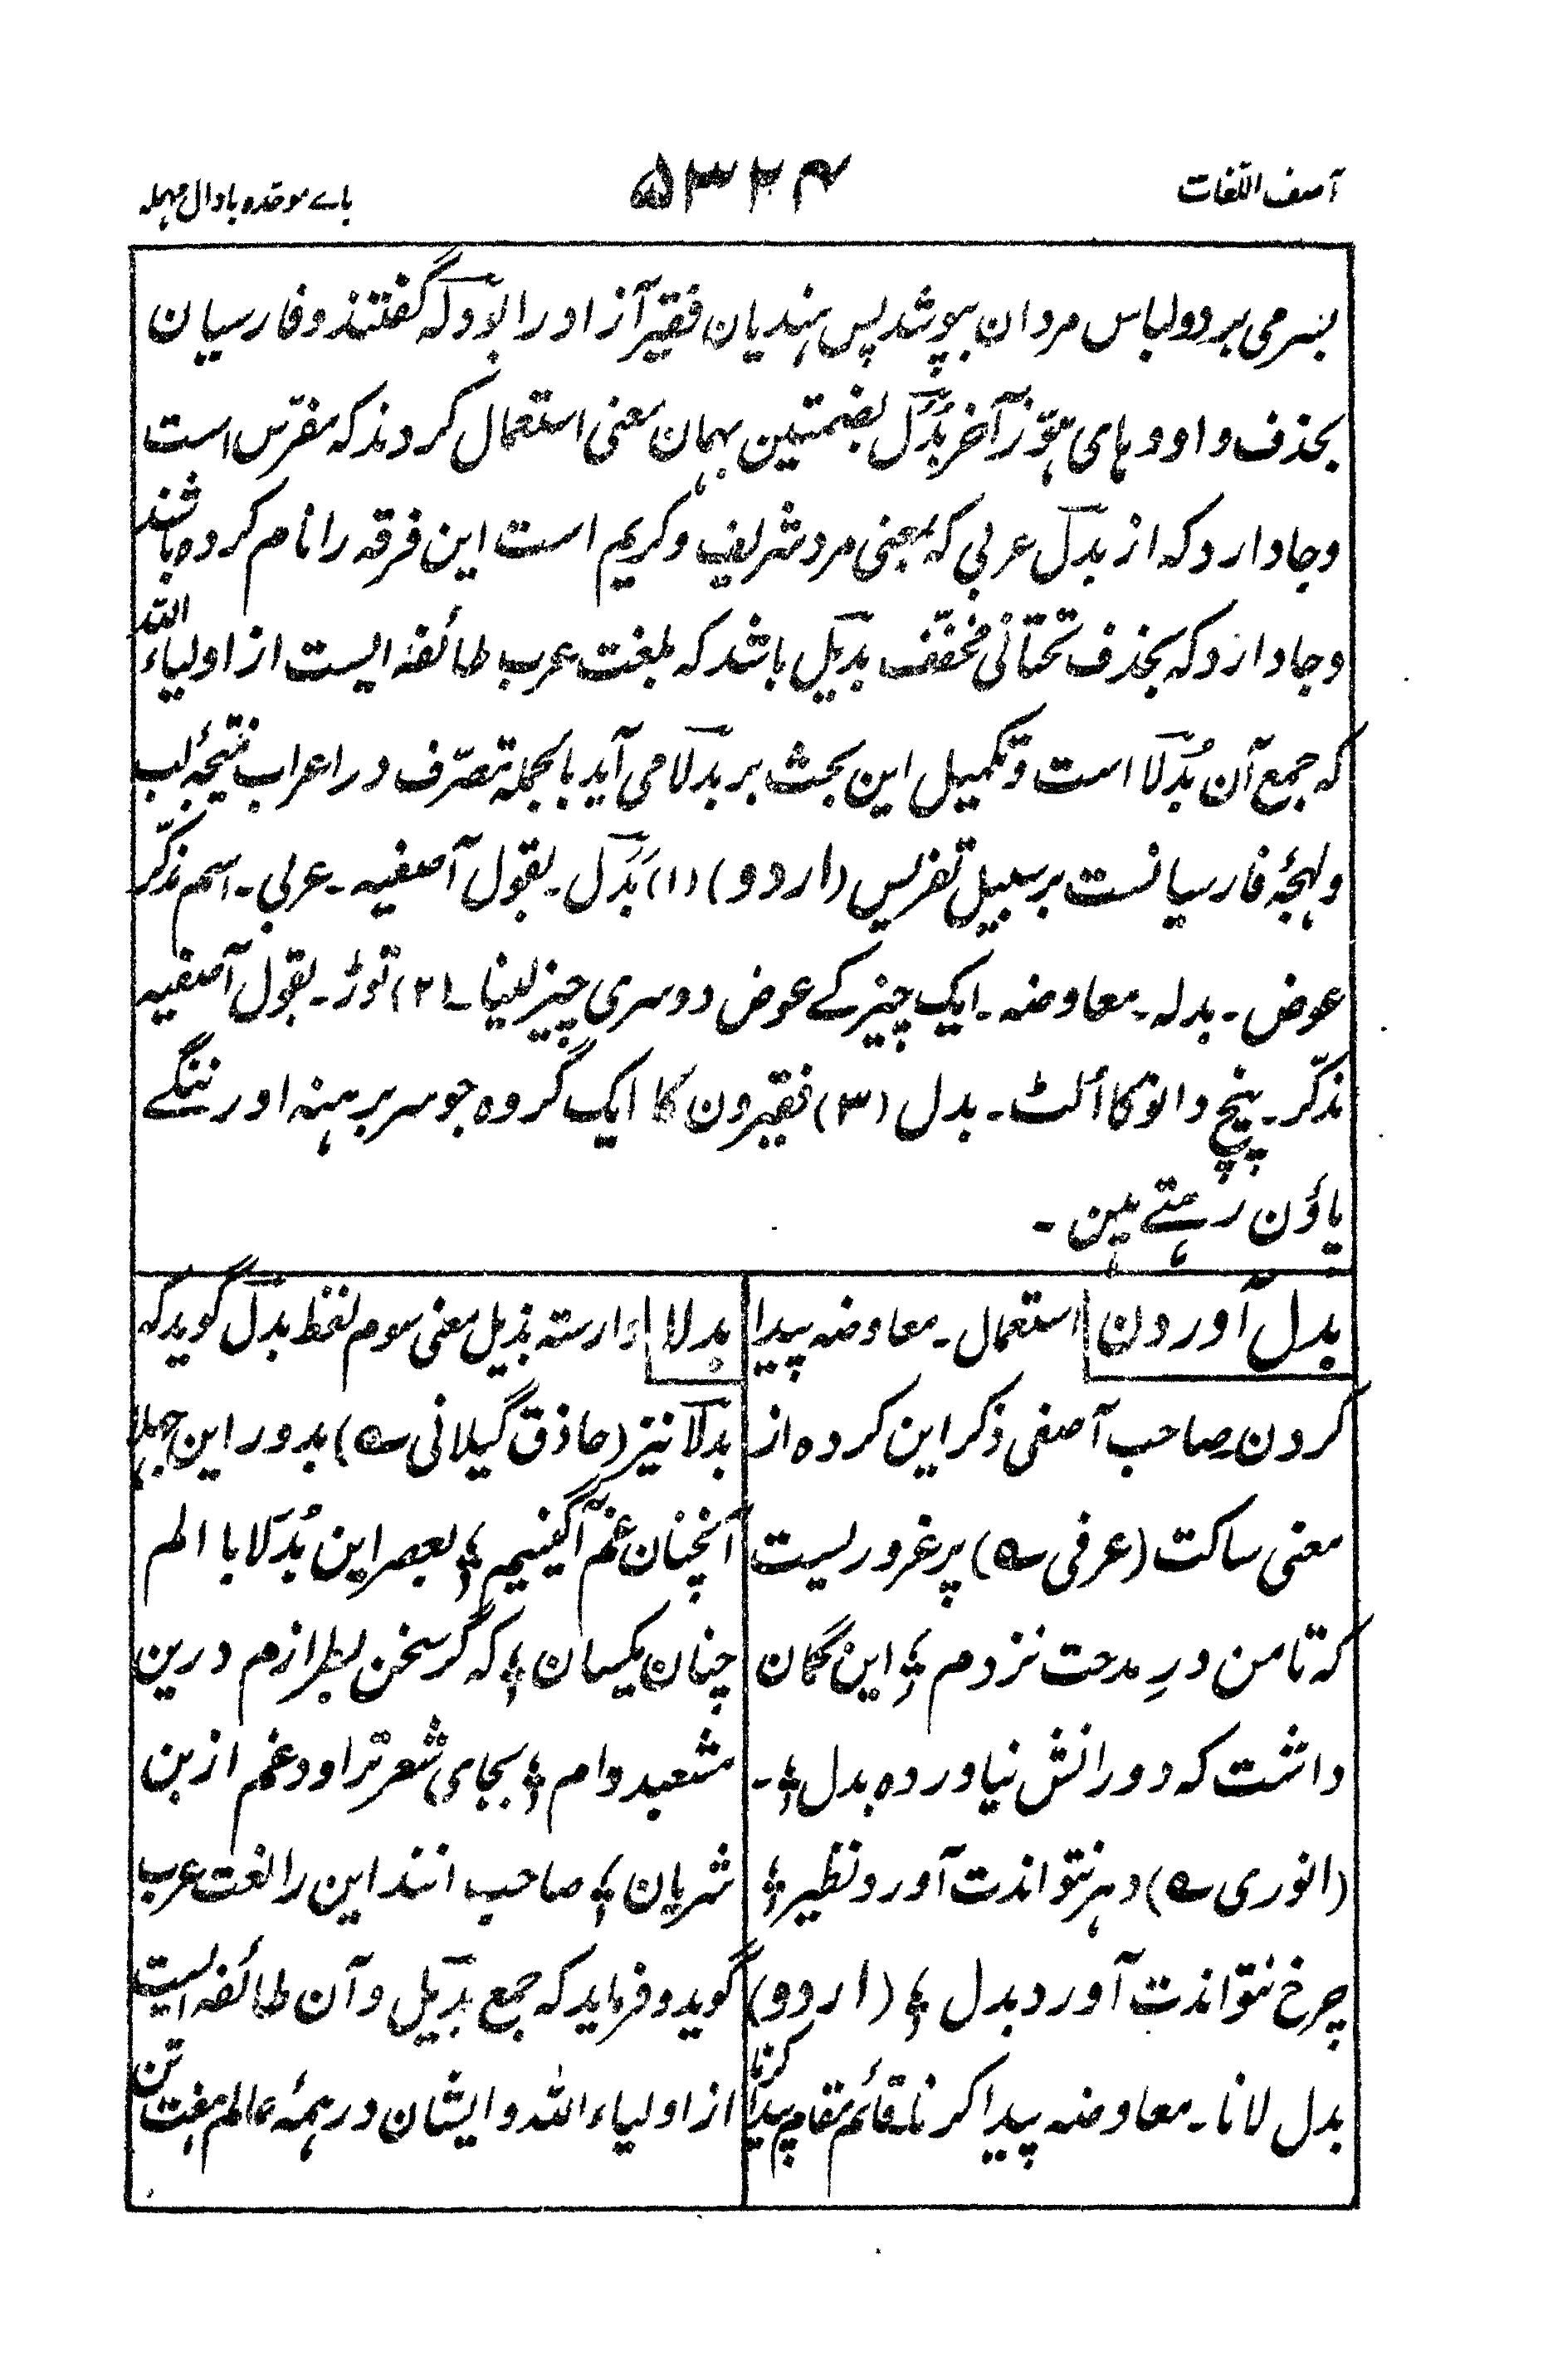 آصف اللّغات
۵۳۲۴
باے موحّدہ بادال مہملہ
بسرمی بردو لباس مردان بپوشد پس ہندیان فقیر آزاد را بودلہ گفتند و فارسیان
بحذف واو و ہای ہوّز آخر بُدُل بضمتین بہمان معنی استعمال کردند کہ مفرّس است
وجا دارد کہ از بدل عربی کہ بمعنی مرد شریف و کریم است این فرقہ را نام کردہ باشند
وجا دارد کہ بحذف تحتانی مخفّف بدیل باشد کہ بلغت عرب طائفہ ایست از اولیاء اللہ
کہ جمع آن بُدَلا است و تکمیل این بحث بر بدلا می آید بالجملہ تصرّف در اعراب نتیجۂ لب
ولہجۂ فارسیانست بر سبیل تفریس (اردو) (۱) بَدَل ۔ بقول آصفیہ ۔ عربی ۔ اسم مذکّر
عوض ۔ بدلہ ۔ معاوضہ ۔ ایک چیز کے عوض دوسری چیز لینا ۔ (۲) توڑ ۔ بقول آصفیہ
مذکّر ۔ پیچ دانو کا اُلٹ ۔ بدل (۳) فقیرون کا ایک گروہ جو سر برہنہ اور ننگے
پاؤن رہتے ہین ۔
بدل آوردن استعمال ۔ معاوضہ پیدا
کردن صاحب آصفی ذکر این کردہ از
معنی ساکت (عرفی ؎) پر غروریست
کہ تا من درِ مدحت نزدم ؛ این گمان
داشت کہ دورانش نیاوردہ بدل ؛ ۔
(انوری ؎) دہر نتواندت آورد نظیر ؛
چرخ نتواندت آورد بدل ؛ (اردو)
بدل لانا ۔ معاوضہ پیدا کرنا ۔ قائم مقام پیدا کرنا
بدلا وارستہ بذیل معنی سوم لفظ بدل گوید کہ
بدلا نیز (حاذق گیلانی ؎) بدور این جہلا
آنچنان غم آگینیم ؛ بعصر این بُدَلا با الم
چنان یکسان ؛ کہ گر سخن بطرازم درین
مشعبد دام ؛ بجای شعر تراود غم از بن
شریان ؛ صاحب انند این را لغت عرب
گوید و فرماید کہ جمع بدیل و آن طائفہ ایست
از اولیاء اللہ و ایشان در ہمۂ عالم ہفت تن